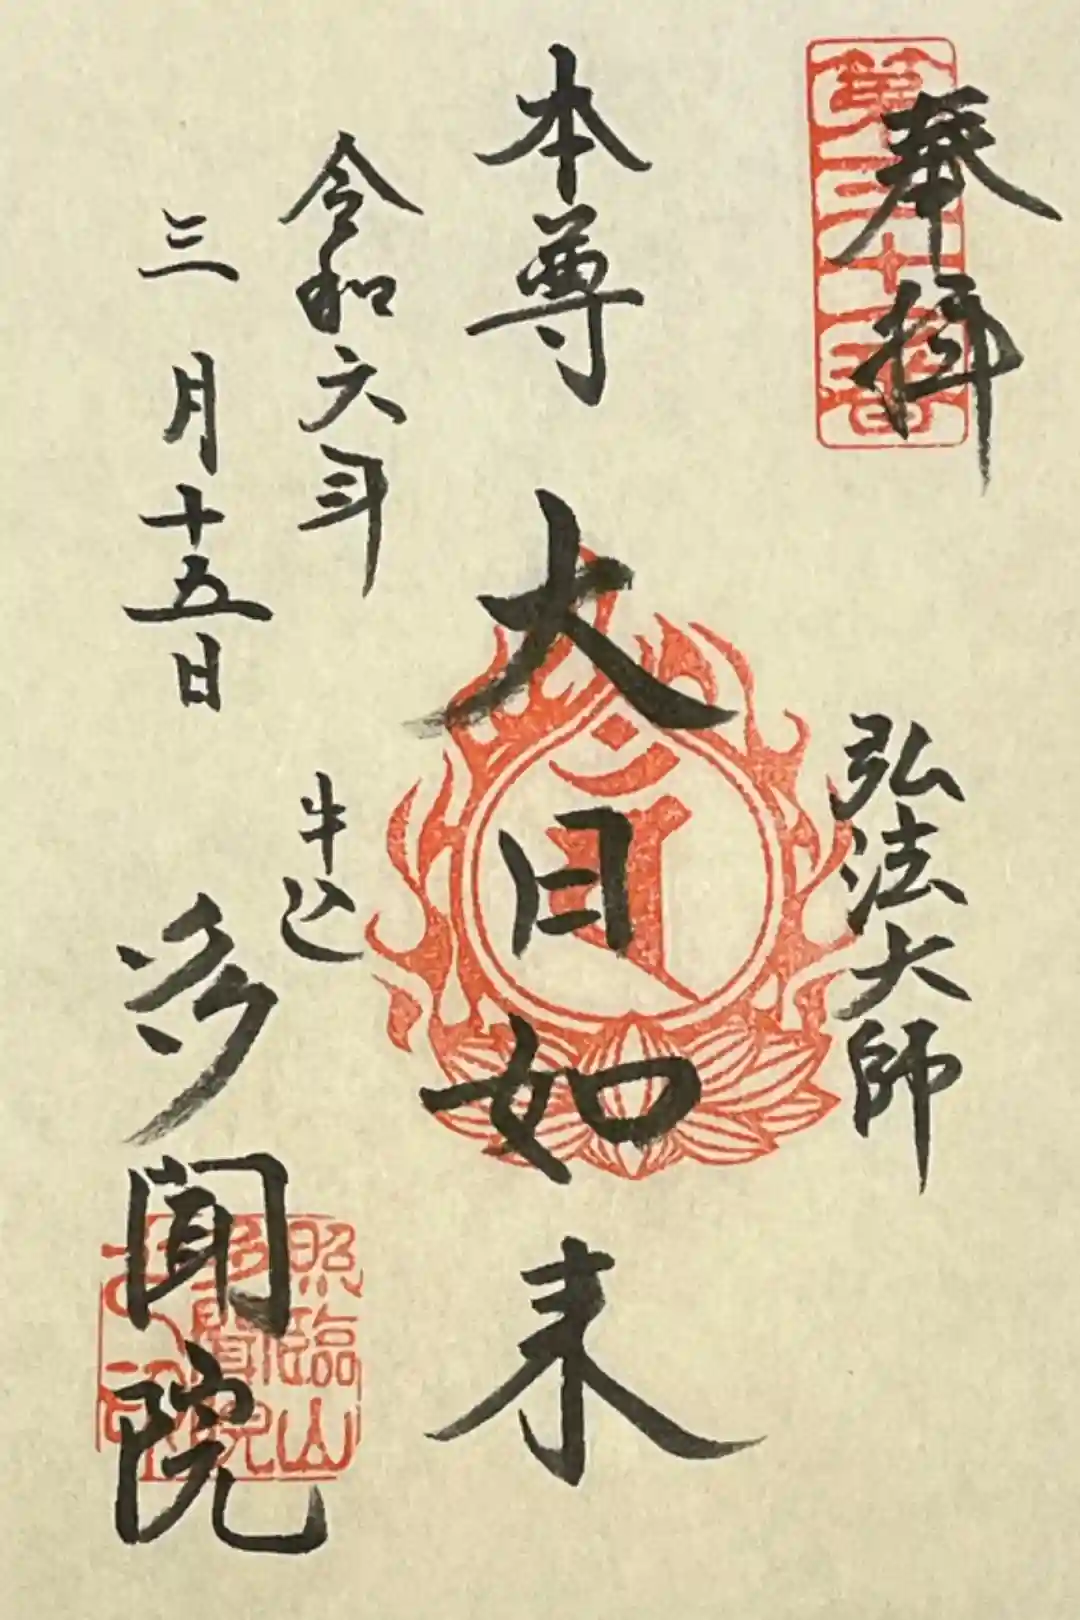 奉拝
第三十一番
弘法大師
本尊
大日如来
令和六年
三月十五日
牛込
多聞院
照臨山
多聞院